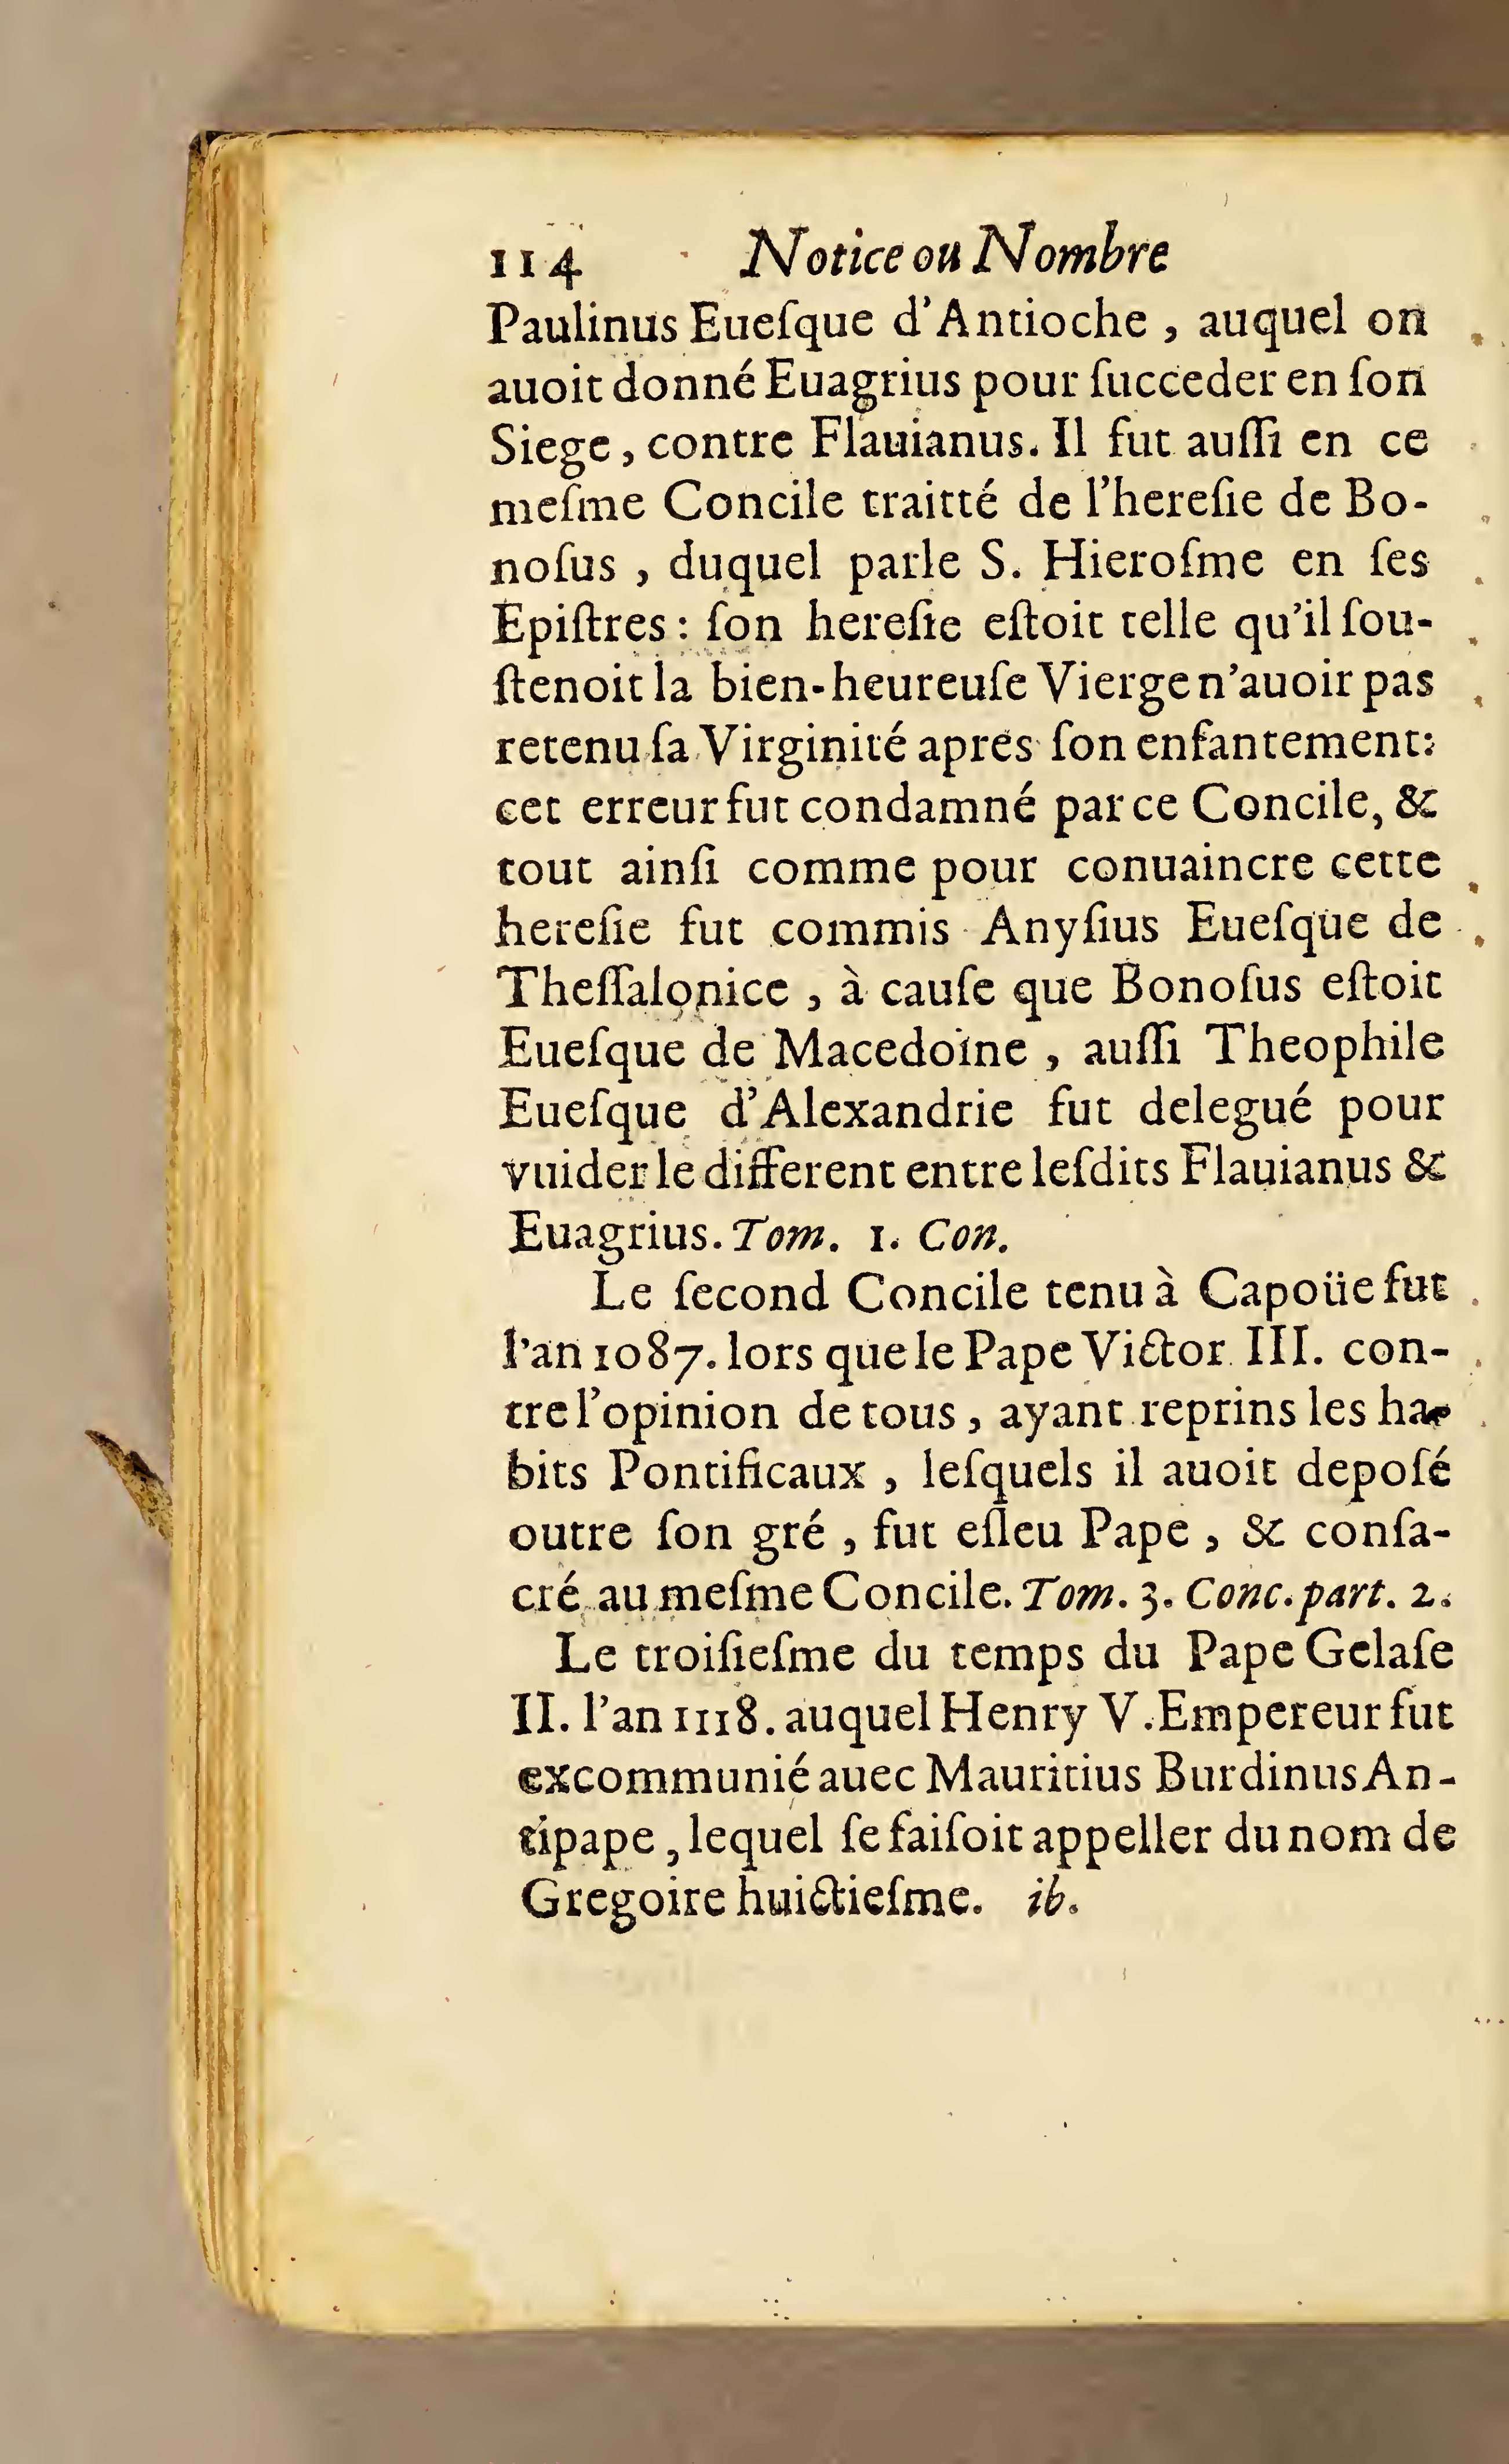 114 Notice ou Nombre
Paulinus Eueſque d'Antioche , auquel on
auoit donné Euagrius pour ſucceder en ſon
Siege, contre Flauianus. Il fut auſſi en ce
meſme Concile traitté de l'hereſie de Bo-
noſus , duquel parle S. Hieroſme en ſes
Epiſtres : ſon hereſie eſtoit telle qu'il ſou-
ſtenoit la bien-heureuſe Vierge n'auoir pas
retenu ſa Virginité aprés ſon enfantement:
cet erreur fut condamné par ce Concile, &
tout ainſi comme pour conuaincre cette
hereſie fut commis Anyſius Eueſque de
Theſſalonice , à cauſe que Bonoſus eſtoit
Eueſque de Macedoine , auſſi Theophile
Eueſque d'Alexandrie fut delegué pour
vuider le different entre leſdits Flauianus &
Euagrius. Tom. 1. Con.
Le ſecond Concile tenu à Capoüe fut
l'an 1087. lors que le Pape Victor III. con-
tre l'opinion de tous , ayant reprins les ha-
bits Pontificaux , leſquels il auoit depoſé
outre ſon gré , fut eſleu Pape , & conſa-
cré au meſme Concile. Tom. 3. Conc. part. 2.
Le troiſieſme du temps du Pape Gelaſe
II. l'an 1118. auquel Henry V. Empereur fut
excommunié auec Mauritius Burdinus An-
tipape , lequel ſe faiſoit appeller du nom de
Gregoire huictieſme. ib.